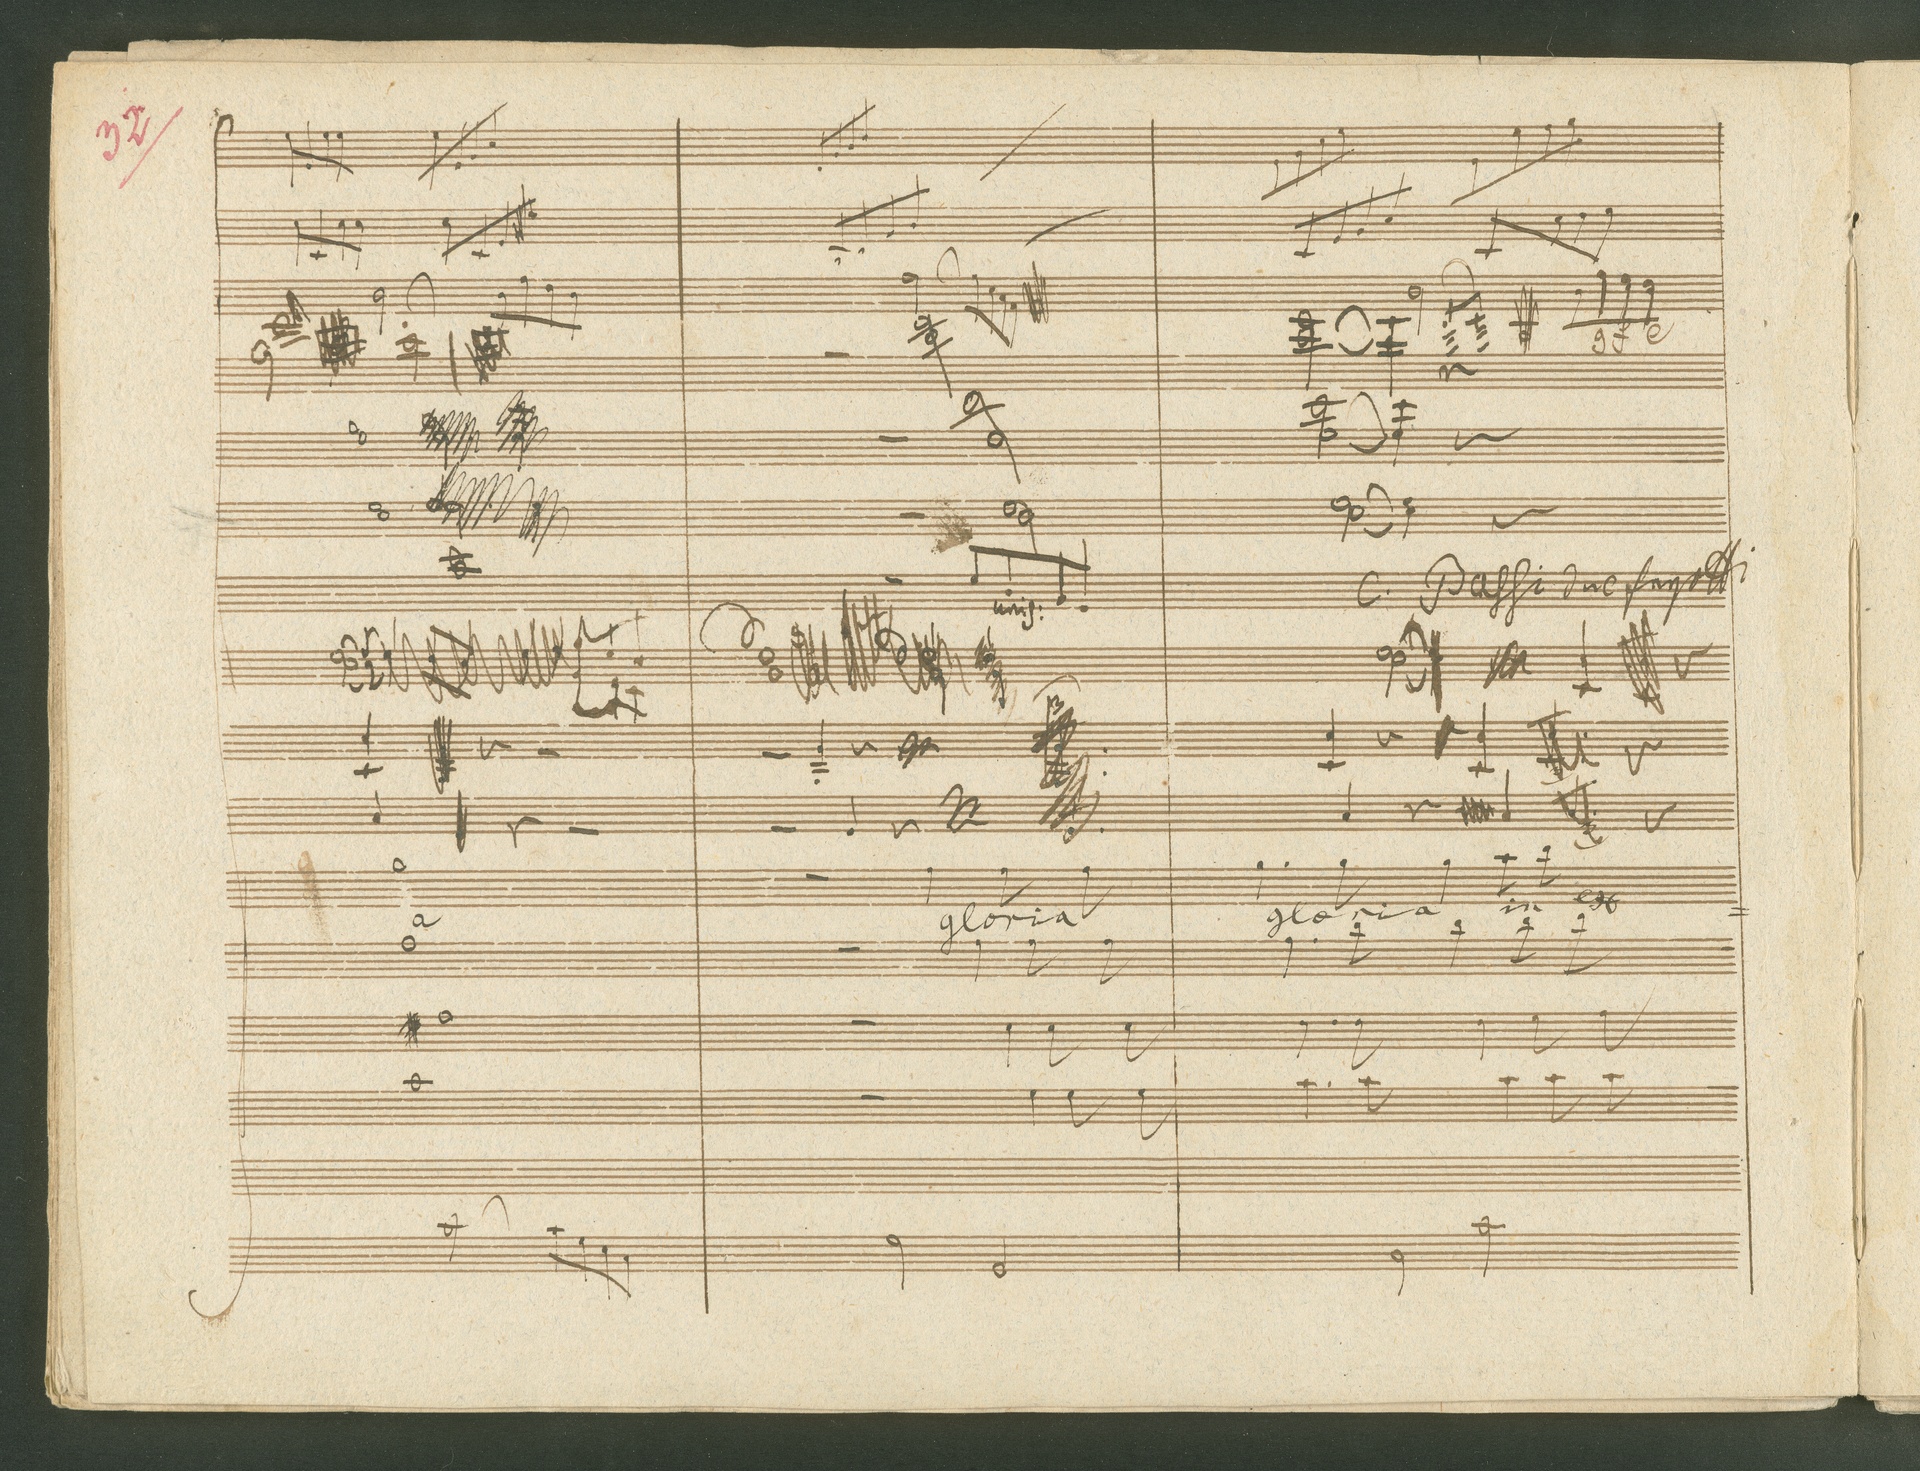 32/
g f e
unis:
C. Bassi due fagotti
a
gloria gloria in exc